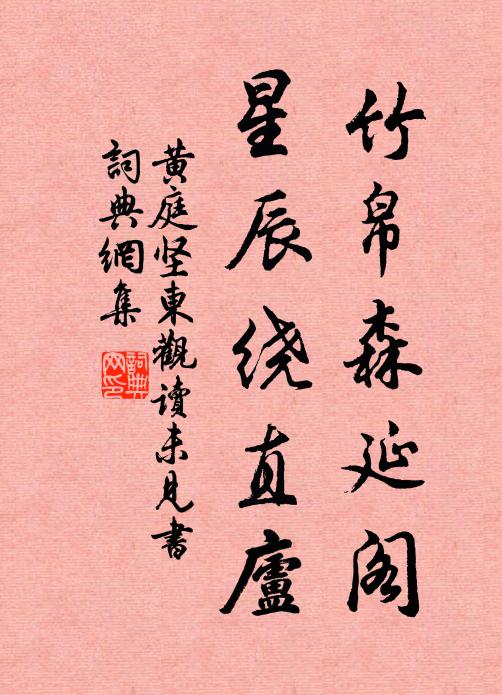 竹帛森延阁
星辰绕直廬
黄庭坚東觀讀未見書
詞典網集
詞典網印